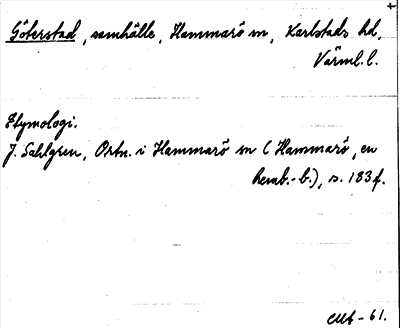 Göterstad, samhälle, Hammarö sn, Karlstads hd,
Värml. l.
Etymologi.
J. Sahlgren, Ortn. i Hammarö sn (Hammarö, en
hemb.-b.), s. 183 f.
-61.